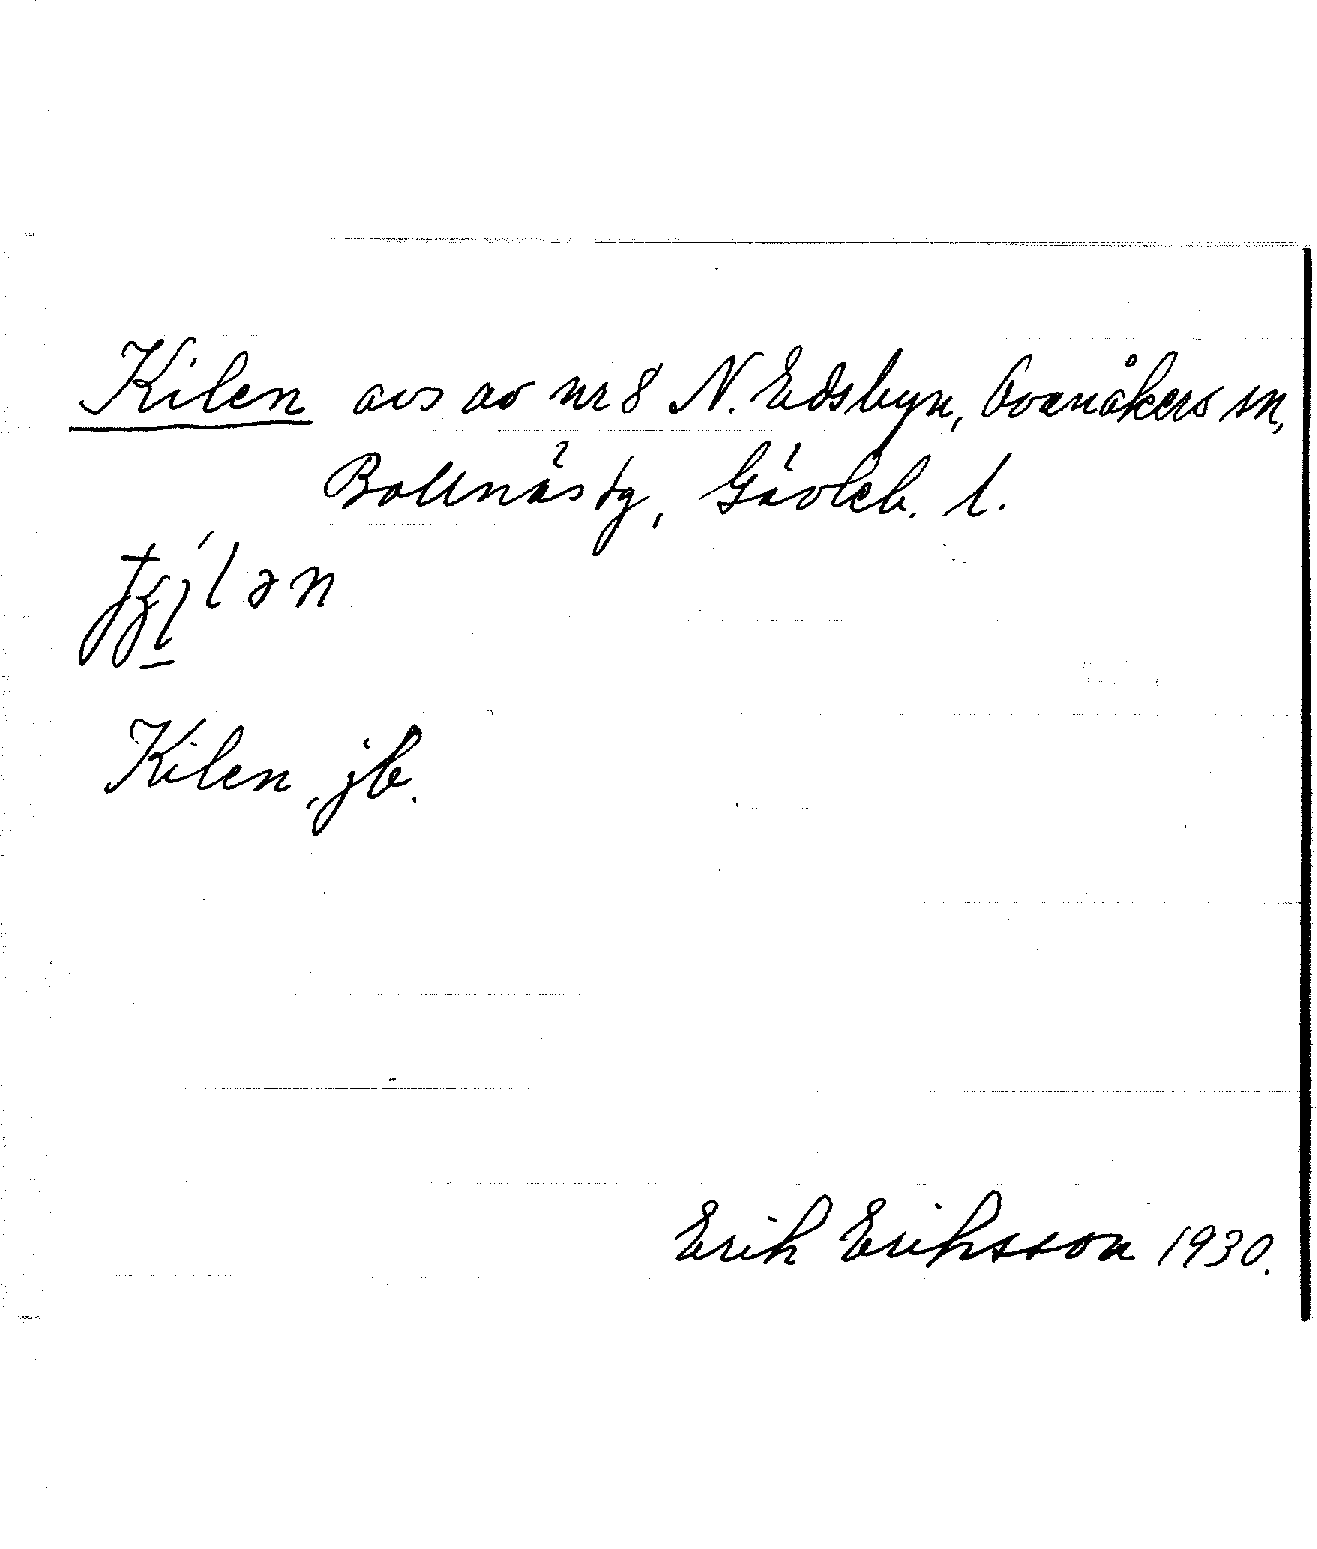 Kilen avs av nr 8 N. Edsbyn, Ovanåkers sn,
Bollnäs tg, Gävleb. l.
Kilen, jb.
Erik Eriksson 1930.